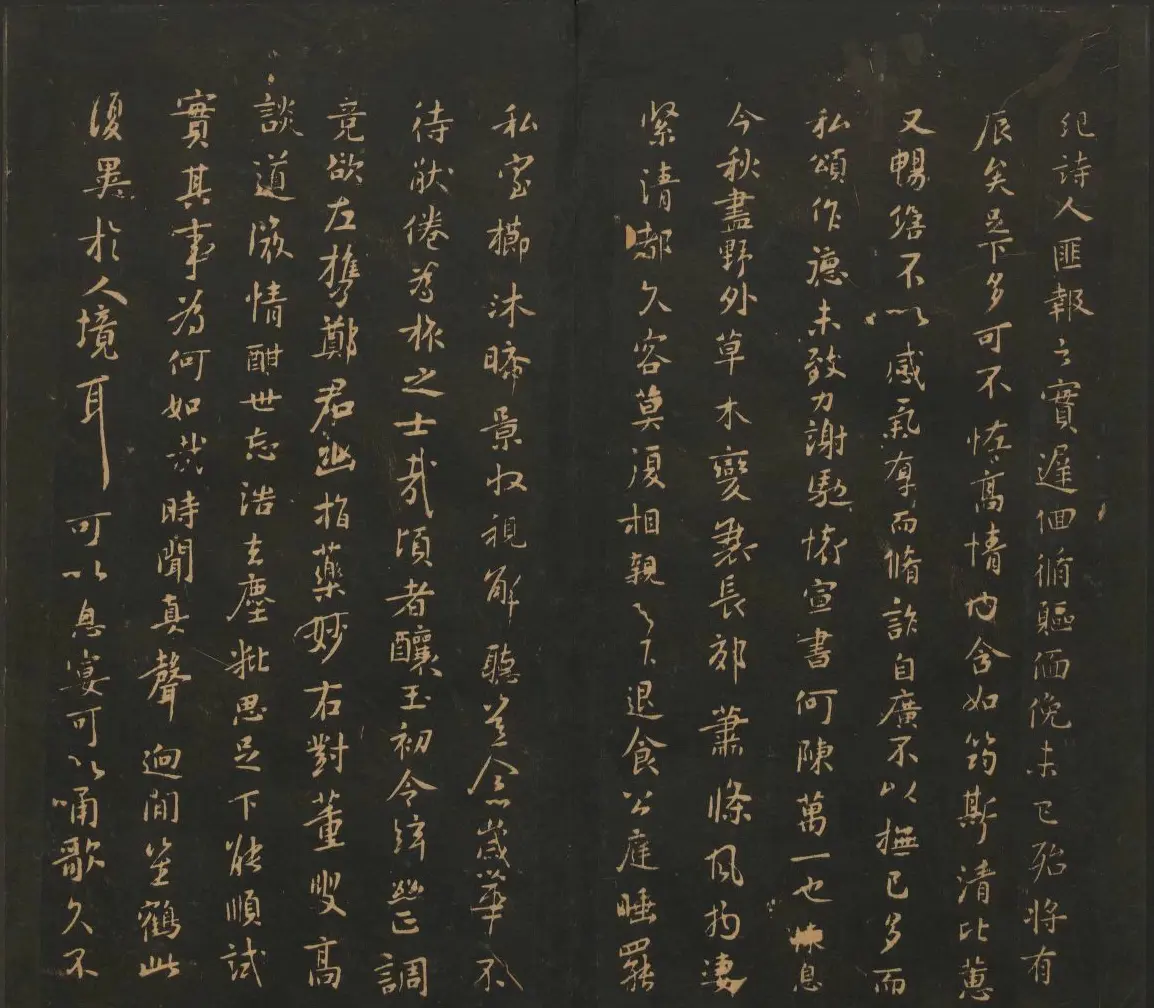 紀詩人匪報之實遲佪循軀僶俛未已殆將有
辰矣足下多可不恠高情內含如筠斯清比蕙
又暢窮不以感氣厚而脩詠自廣不以撫已多而
私頌作德未致力謝馳懷宣書何陳萬一也休息
今秋盡野外草木變衰長郊蕭條風拘凄
緊清都久容莫復相親足下退食公庭睡罷
私室櫛沐晞景收視解聽盖念歲華不
待猒倦為旅之士哉頃者釀玉初令絃調
竟欲左攜鄭君幽指藥妙右對董叟高
談道漵情酣世忘浩去塵粃思足下能順試
實其事為何如哉時聞真聲迥聞笙鶴此
復異於人境耳可以息宴可以嘯歌久不